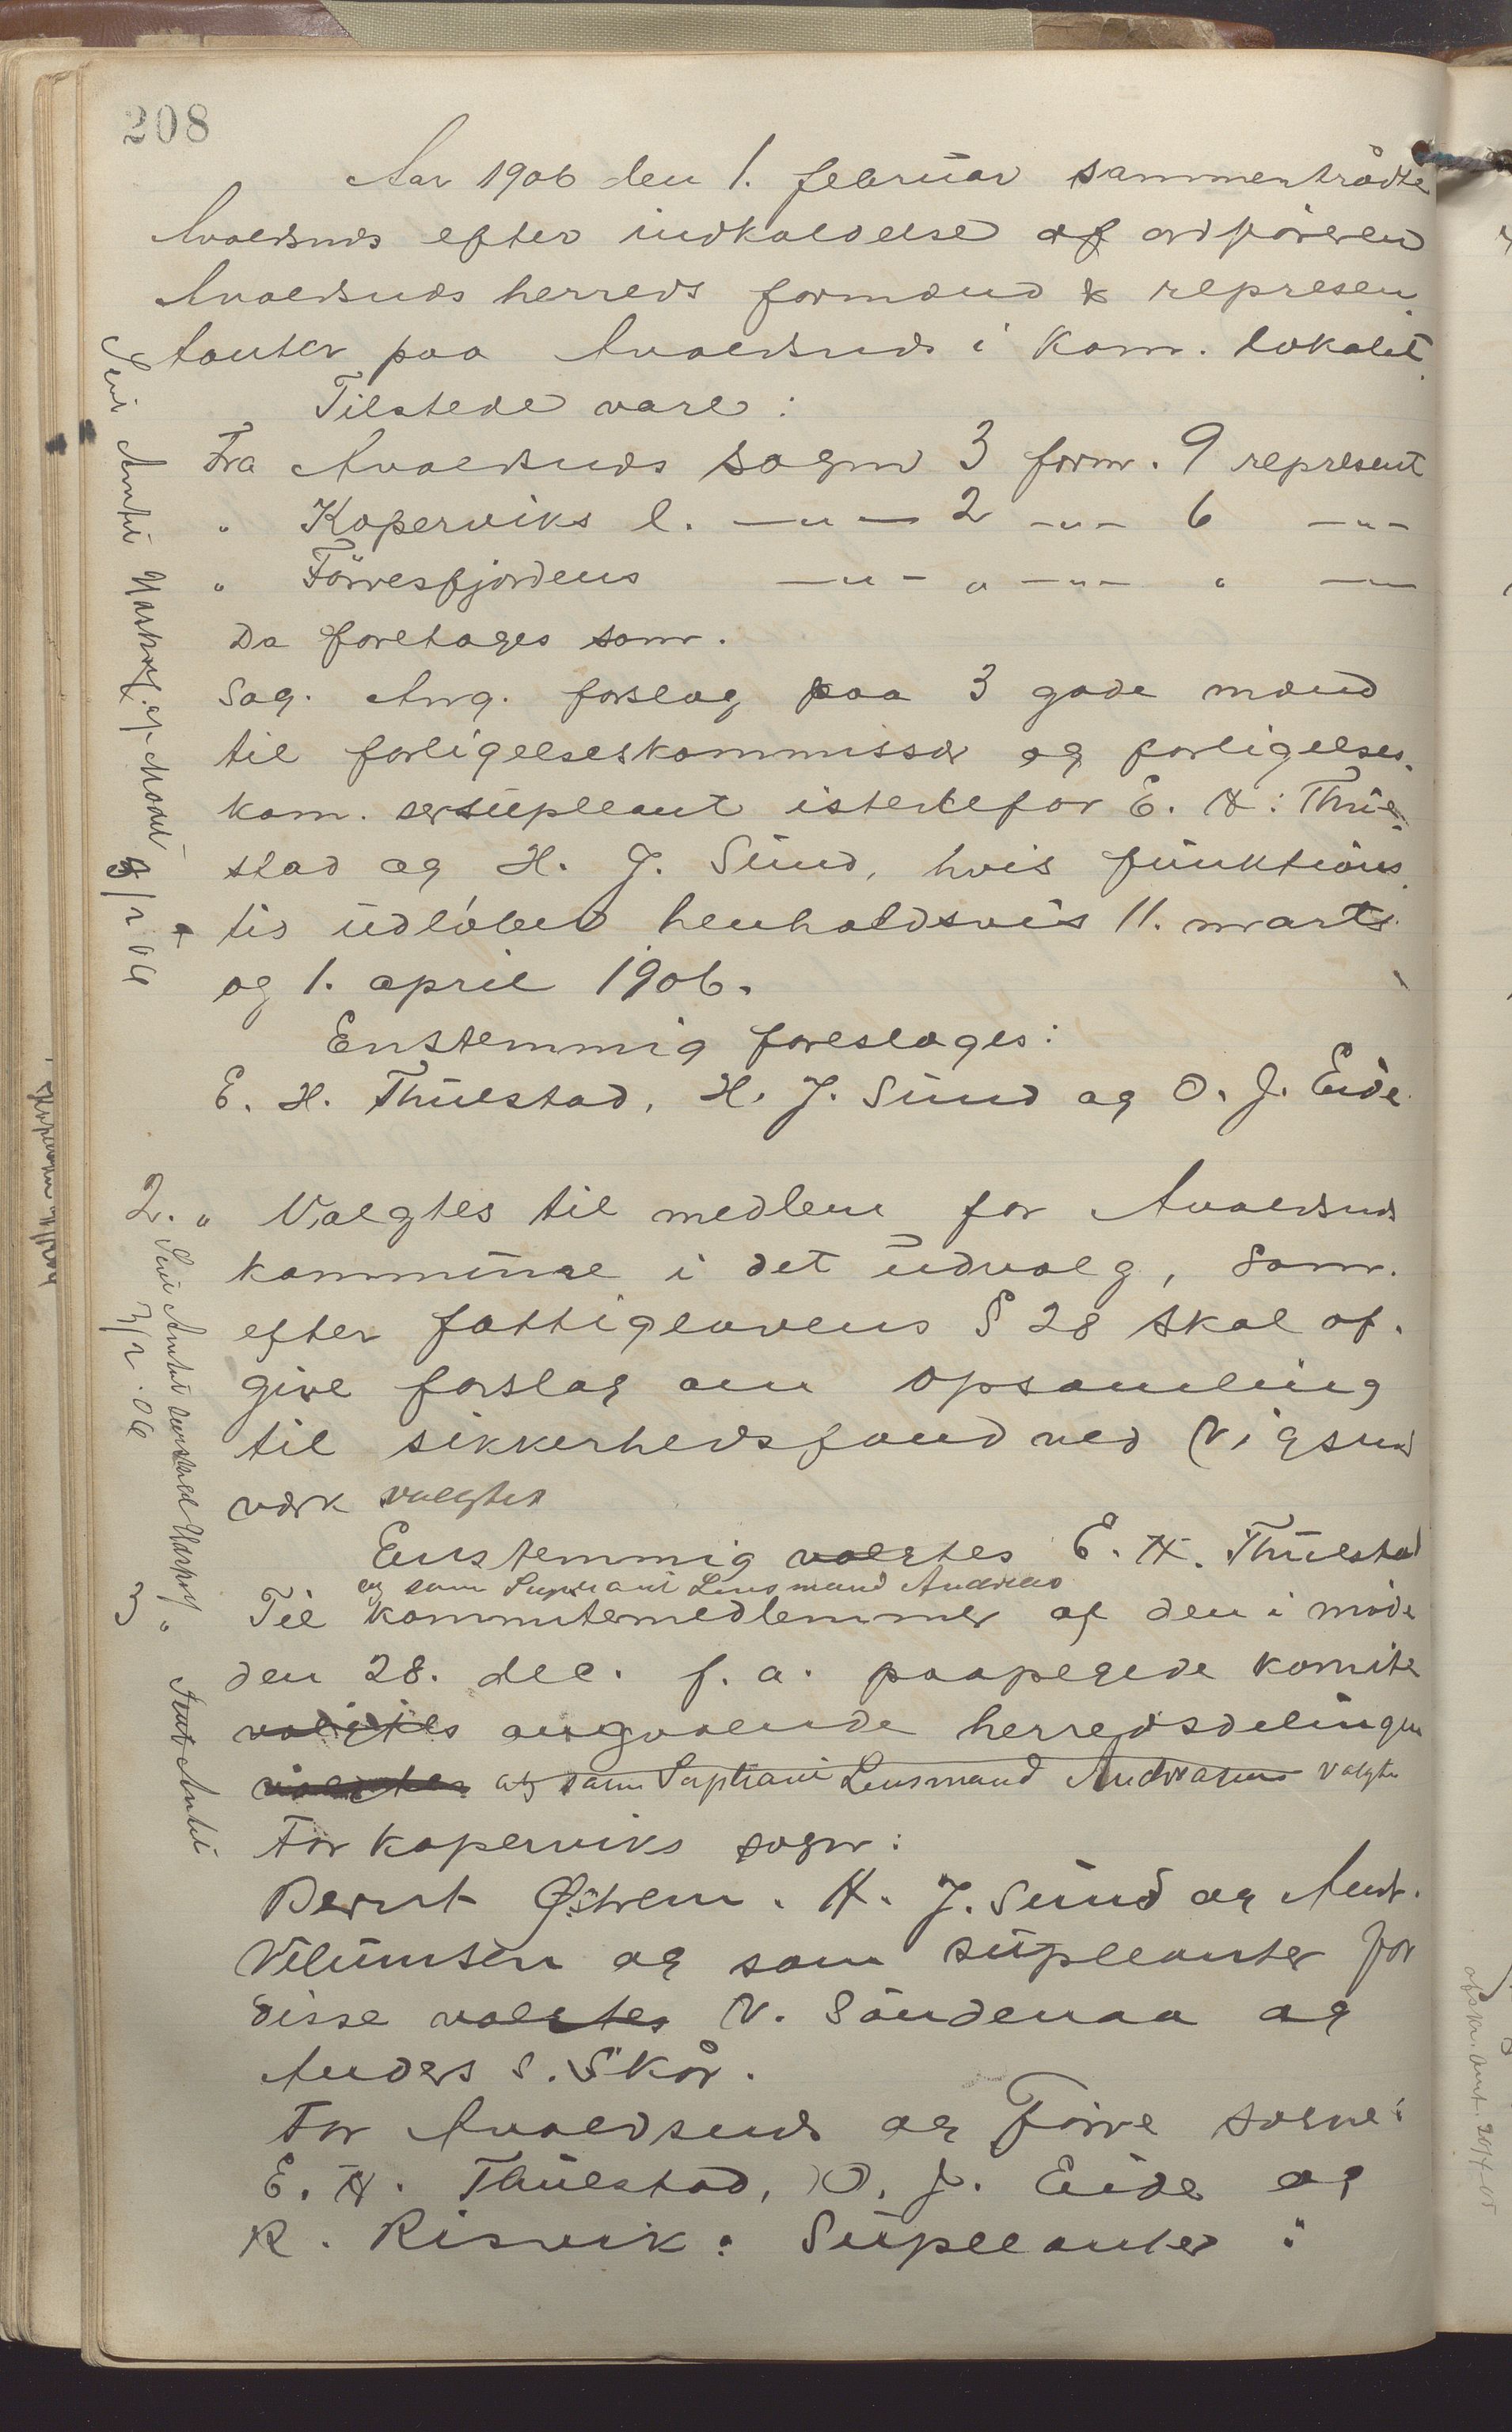 208
Aar 1906 den 1. februar sammentrådte
Avaldsnds efter indkaldelse af ordføreren
Avaldsnds herreds formænd & represen
tanter paa Avaldsnds i Kom. lokalet
Tilstede vare:
Fra Avaldsnds sogn 3 form. 9 represent
" Koperviks l. —"— 2 —"— 6 —"—
" Førresfjordens —"— " —"— " —
Da foretages som.
Sag. Ang. forslag paa 3 gode mænd
til forligelseskommissær og forligelses.
kom. ersupleant istedefor E. H. Thue
stad og H. J. Sund, hvis funktions
tid udløber henholdsvis 11. marts
og 1. april 1906.
Enstemmig foreslages:
E. H. Thuestad, H. J. Sund og O. J. Eide
2. " Valgtes til medlem for Avaldsnds
kommune i det udvalg, som.
efter fattiglovens § 28 skal af.
give forslag om opsamling
til sikkerhedsfond ved Vigsnæs
værk valgtes
Enstemmig valgtes E. H. Thuestad
og som Supleant Lensmand Andreas
3 " Til komitemedlemmer af den i møde
den 28. dec. f. a. paapegede komite
valgtes angaaende herredsdelingen
og som Supleant Lensmand Andreasen valgtes
For Koperviks sogn:
Bernt Østrem. H. J. Sund og Andr.
og som supleanter for
disse valgtes V. Søndenaa og
Anders S. Skår.
For Avaldsnds og Førre sogne:
E. H. Thuestad, O. J. Eide og
R. Risvik: Supleanter:
Sent Amtet
8/2 06
Sent Amtet
3/2 .06
Sent Amtet